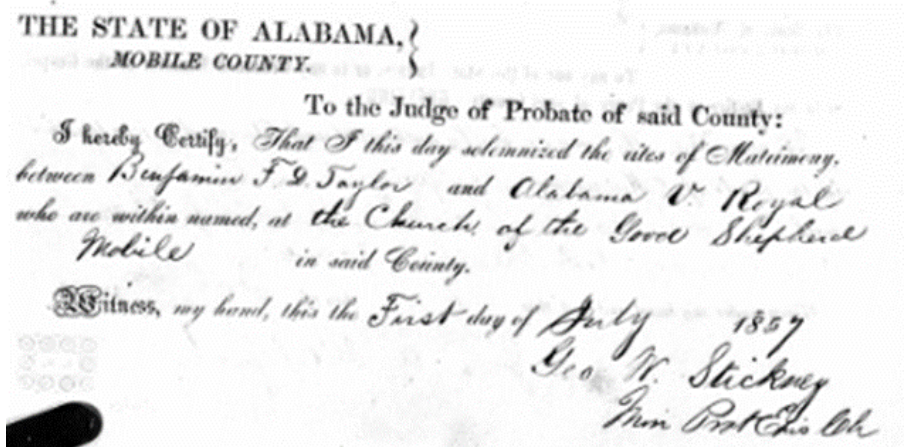 THE STATE OF ALABAMA,
MOBILE COUNTY.
To the Judge of Probate of said County:
I hereby Certify, That I this day solemnized the rites of Matrimony,
between Benjamin F. D. Taylor and Alabama V. Royal
who are within named, at the Church of the Good Shepherd
Mobile in said County.
Witness, my hand, this the First day of July 1857
Geo W. Stickney
Min Prot Epis Ch